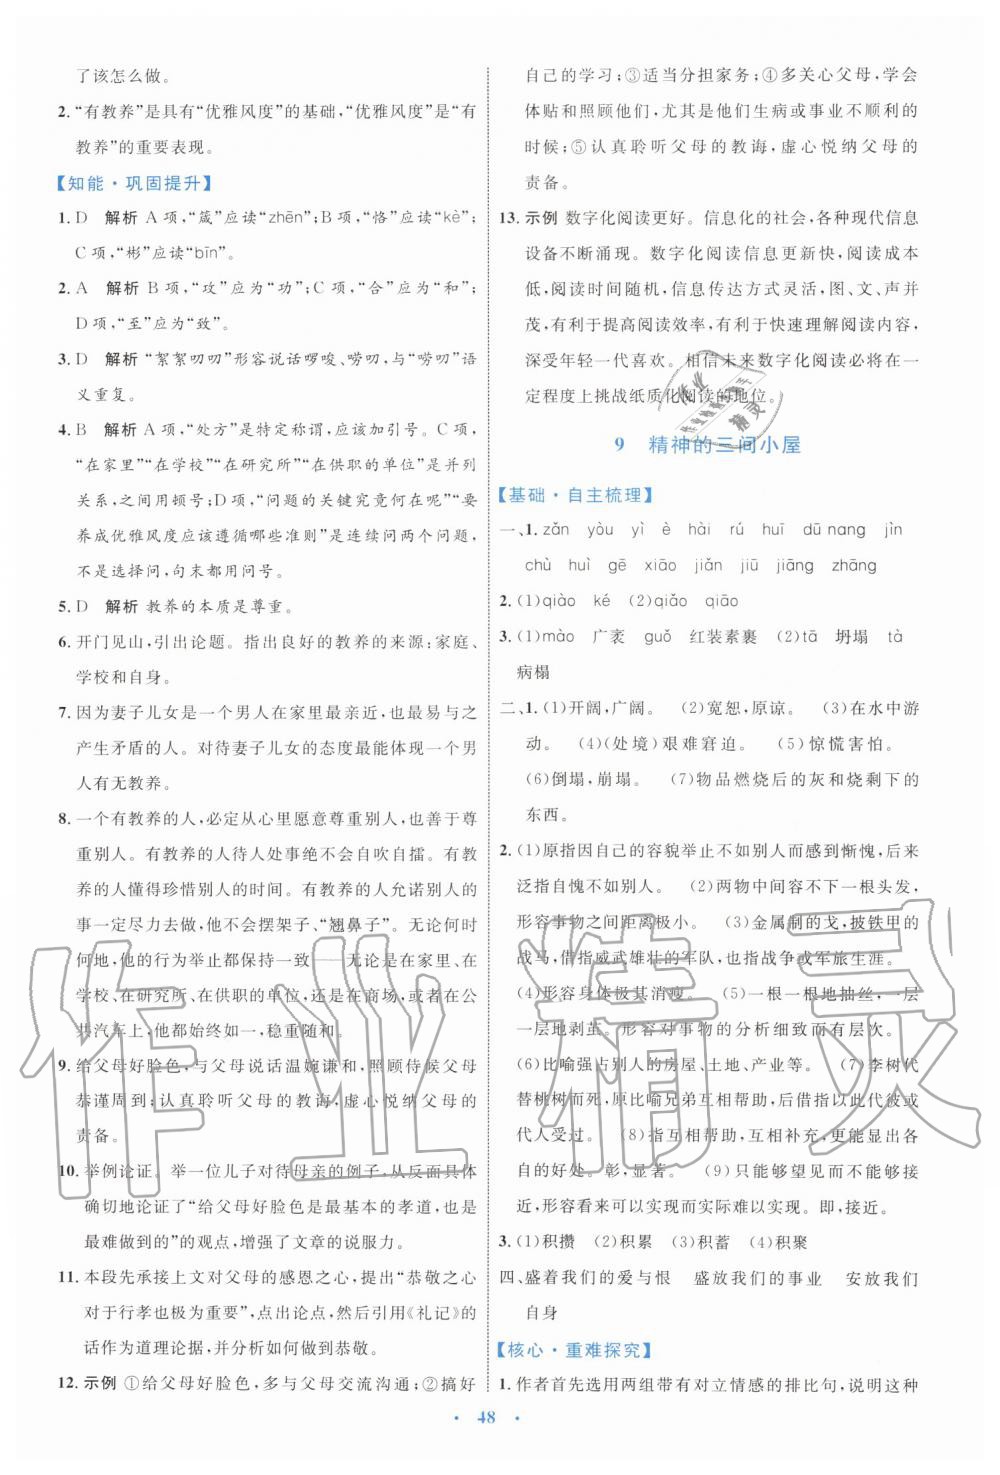 了该怎么做。
2. “有教养”是具有“优雅风度”的基础,“优雅风度”是“有
教养”的重要表现。
【知能·巩固提升】
1. D 解析 A 项,“箴”应读“zhēn”;B 项,“恪”应读“kè”;
C 项,“彬”应读“bīn”。
2. A 解析 B 项,“攻”应为“功”;C 项,“合”应为“和”;
D 项,“至”应为“致”。
3. D 解析 “絮絮叨叨”形容说话啰唆、唠叨,与“唠叨”语
义重复。
4. B 解析 A 项,“处方”是特定称谓,应加引号。C 项,
“在家里”“在学校”“在研究所”“在供职的单位”是并列
关系,之间用顿号;D 项,“问题的关键究竟何在呢”“要
养成优雅风度应该遵循哪些准则”是连续问两个问题,
不是选择问,句末都用问号。
5. D 解析 教养的本质是尊重。
6. 开门见山,引出论题。指出良好的教养的来源:家庭、
学校和自身。
7. 因为妻子儿女是一个男人在家里最亲近,也最易与之
产生矛盾的人。对待妻子儿女的态度最能体现一个男
人有无教养。
8. 一个有教养的人,必定从心里愿意尊重别人,也善于尊
重别人。有教养的人待人处事绝不会自吹自擂。有教
养的人懂得珍惜别人的时间。有教养的人允诺别人的
事一定尽力去做,他不会摆架子、“翘鼻子”。无论何时
何地,他的行为举止都保持一致——无论是在家里、在
学校、在研究所、在供职的单位,还是在商场,或者在公
共汽车上,他都始终如一,稳重随和。
9. 给父母好脸色,与父母说话温婉谦和,照顾侍候父母
恭谨周到;认真聆听父母的教诲,虚心悦纳父母的
责备。
10. 举例论证。举一位儿子对待母亲的例子,从反面具体
确切地论证了“给父母好脸色是最基本的孝道,也是
最难做到的”的观点,增强了文章的说服力。
11. 本段先承接上文对父母的感恩之心,提出“恭敬之心
对于行孝也极为重要”,点出论点,然后引用《礼记》的
话作为道理论据,并分析如何做到恭敬。
12. 示例 ①给父母好脸色,多与父母交流沟通;②搞好
自己的学习;③适当分担家务;④多关心父母,学会
体贴和照顾他们,尤其是他们生病或事业不顺利的
时候;⑤认真聆听父母的教诲,虚心悦纳父母的
责备。
13. 示例 数字化阅读更好。信息化的社会,各种现代信息
设备不断涌现。数字化阅读信息更新快,阅读成本
低,阅读时间随机,信息传达方式灵活,图、文、声并
茂,有利于提高阅读效率,有利于快速理解阅读内容,
深受年轻一代喜欢。相信未来数字化阅读必将在一
定程度上挑战纸质化阅读的地位。
9 精神的三间小屋
【基础·自主梳理】
一、1. zǎn yòu yì è hài rú huī dū nang jìn
chù huì gē xiāo jiǎn jiū jiāng zhāng
2. (1)qiào ké (2)qiǎo qiāo
3. (1)mào 广袤 guǒ 红装素裹 (2)tā 坍塌 tà
病榻
二、1. (1)开阔,广阔。 (2)宽恕,原谅。 (3)在水中游
动。 (4)(处境)艰难窘迫。 (5)惊慌害怕。
(6)倒塌,崩塌。 (7)物品燃烧后的灰和烧剩下的
东西。
2. (1)原指因自己的容貌举止不如别人而感到惭愧,后来
泛指自愧不如别人。 (2)两物中间容不下一根头发,
形容事物之间距离极小。 (3)金属制的戈,披铁甲的
战马,借指威武雄壮的军队,也指战争或军旅生涯。
(4)形容身体极其消瘦。 (5)一根一根地抽丝,一层
一层地剥茧。形容对事物的分析细致而有层次。
(6)比喻强占别人的房屋、土地、产业等。 (7)李树代
替桃树而死,原比喻兄弟互相帮助,后指以此代彼或
代人受过。 (8)指互相帮助,互相补充,更能显出各
自的好处。彰,显著。 (9)只能够望见而不能够接
近,形容可以实现而实际难以实现。即,接近。
3. (1)积攒 (2)积累 (3)积蓄 (4)积聚
四、盛着我们的爱与恨 盛放我们的事业 安放我们
自身
【核心·重难探究】
1. 作者首先选用两组带有对立情感的排比句,说明这种
· 48 ·
作业精灵